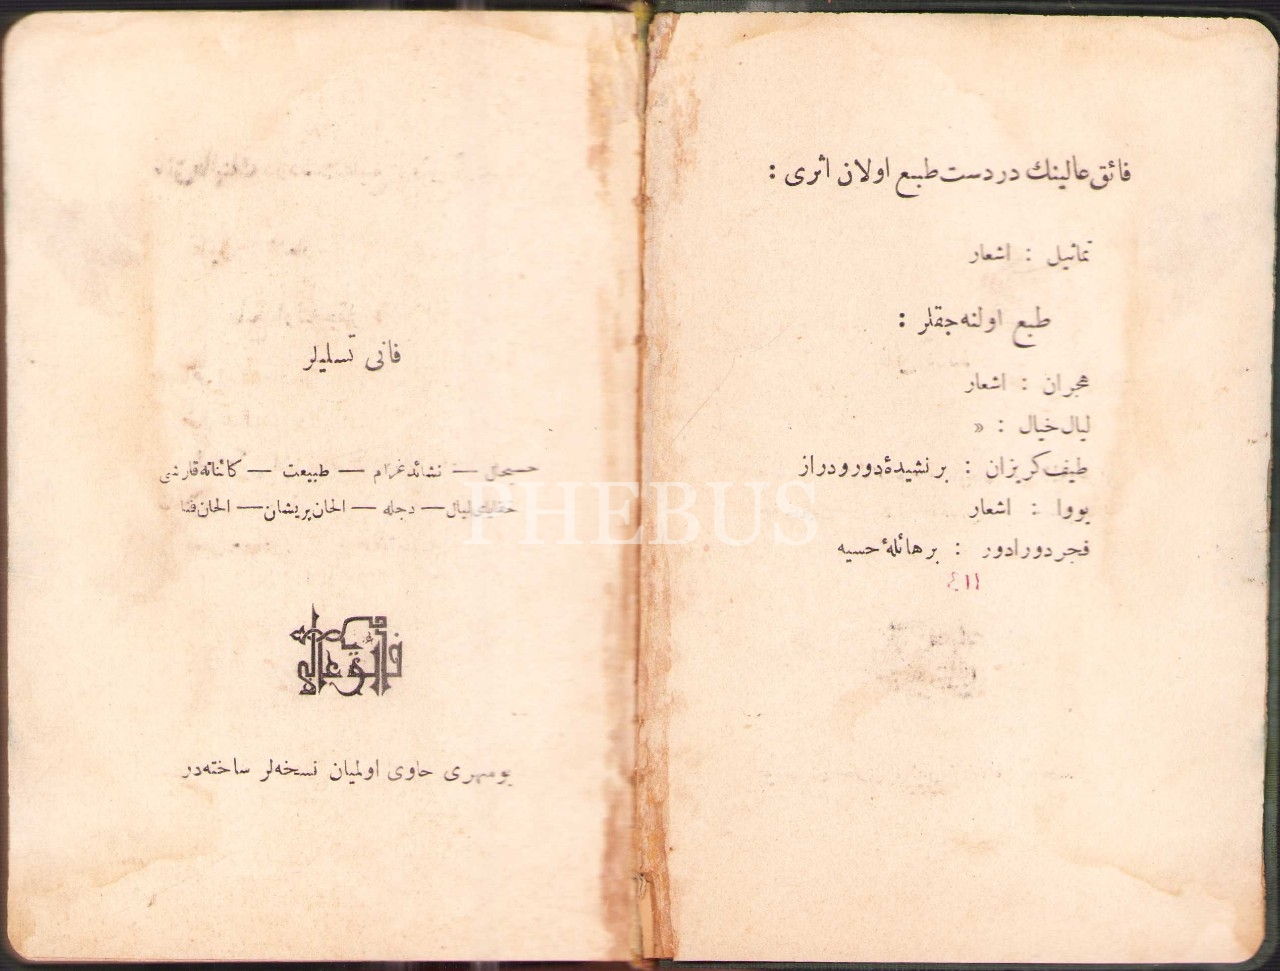 فائق عالینك در دست طبع اولان اثری :
تماثیل : اشعار
طبع اولنه‌جقلر :
هجران : اشعار
لیال خیال : »
طیف کریزان : بر نشیدهٔ دور و دراز
بووا : اشعار
فجر دورادور : بر هائلهٔ حسیه
٤١١
فانی تسلیلر
حسبحال — نشائد غرام — طبیعت — کائناته قارشی
لیال — دجله — الحان پریشان — الحان فنا
فائق عالی
بو مهری حاوی اولمیان نسخه‌لر ساخته‌در
PHEBUS